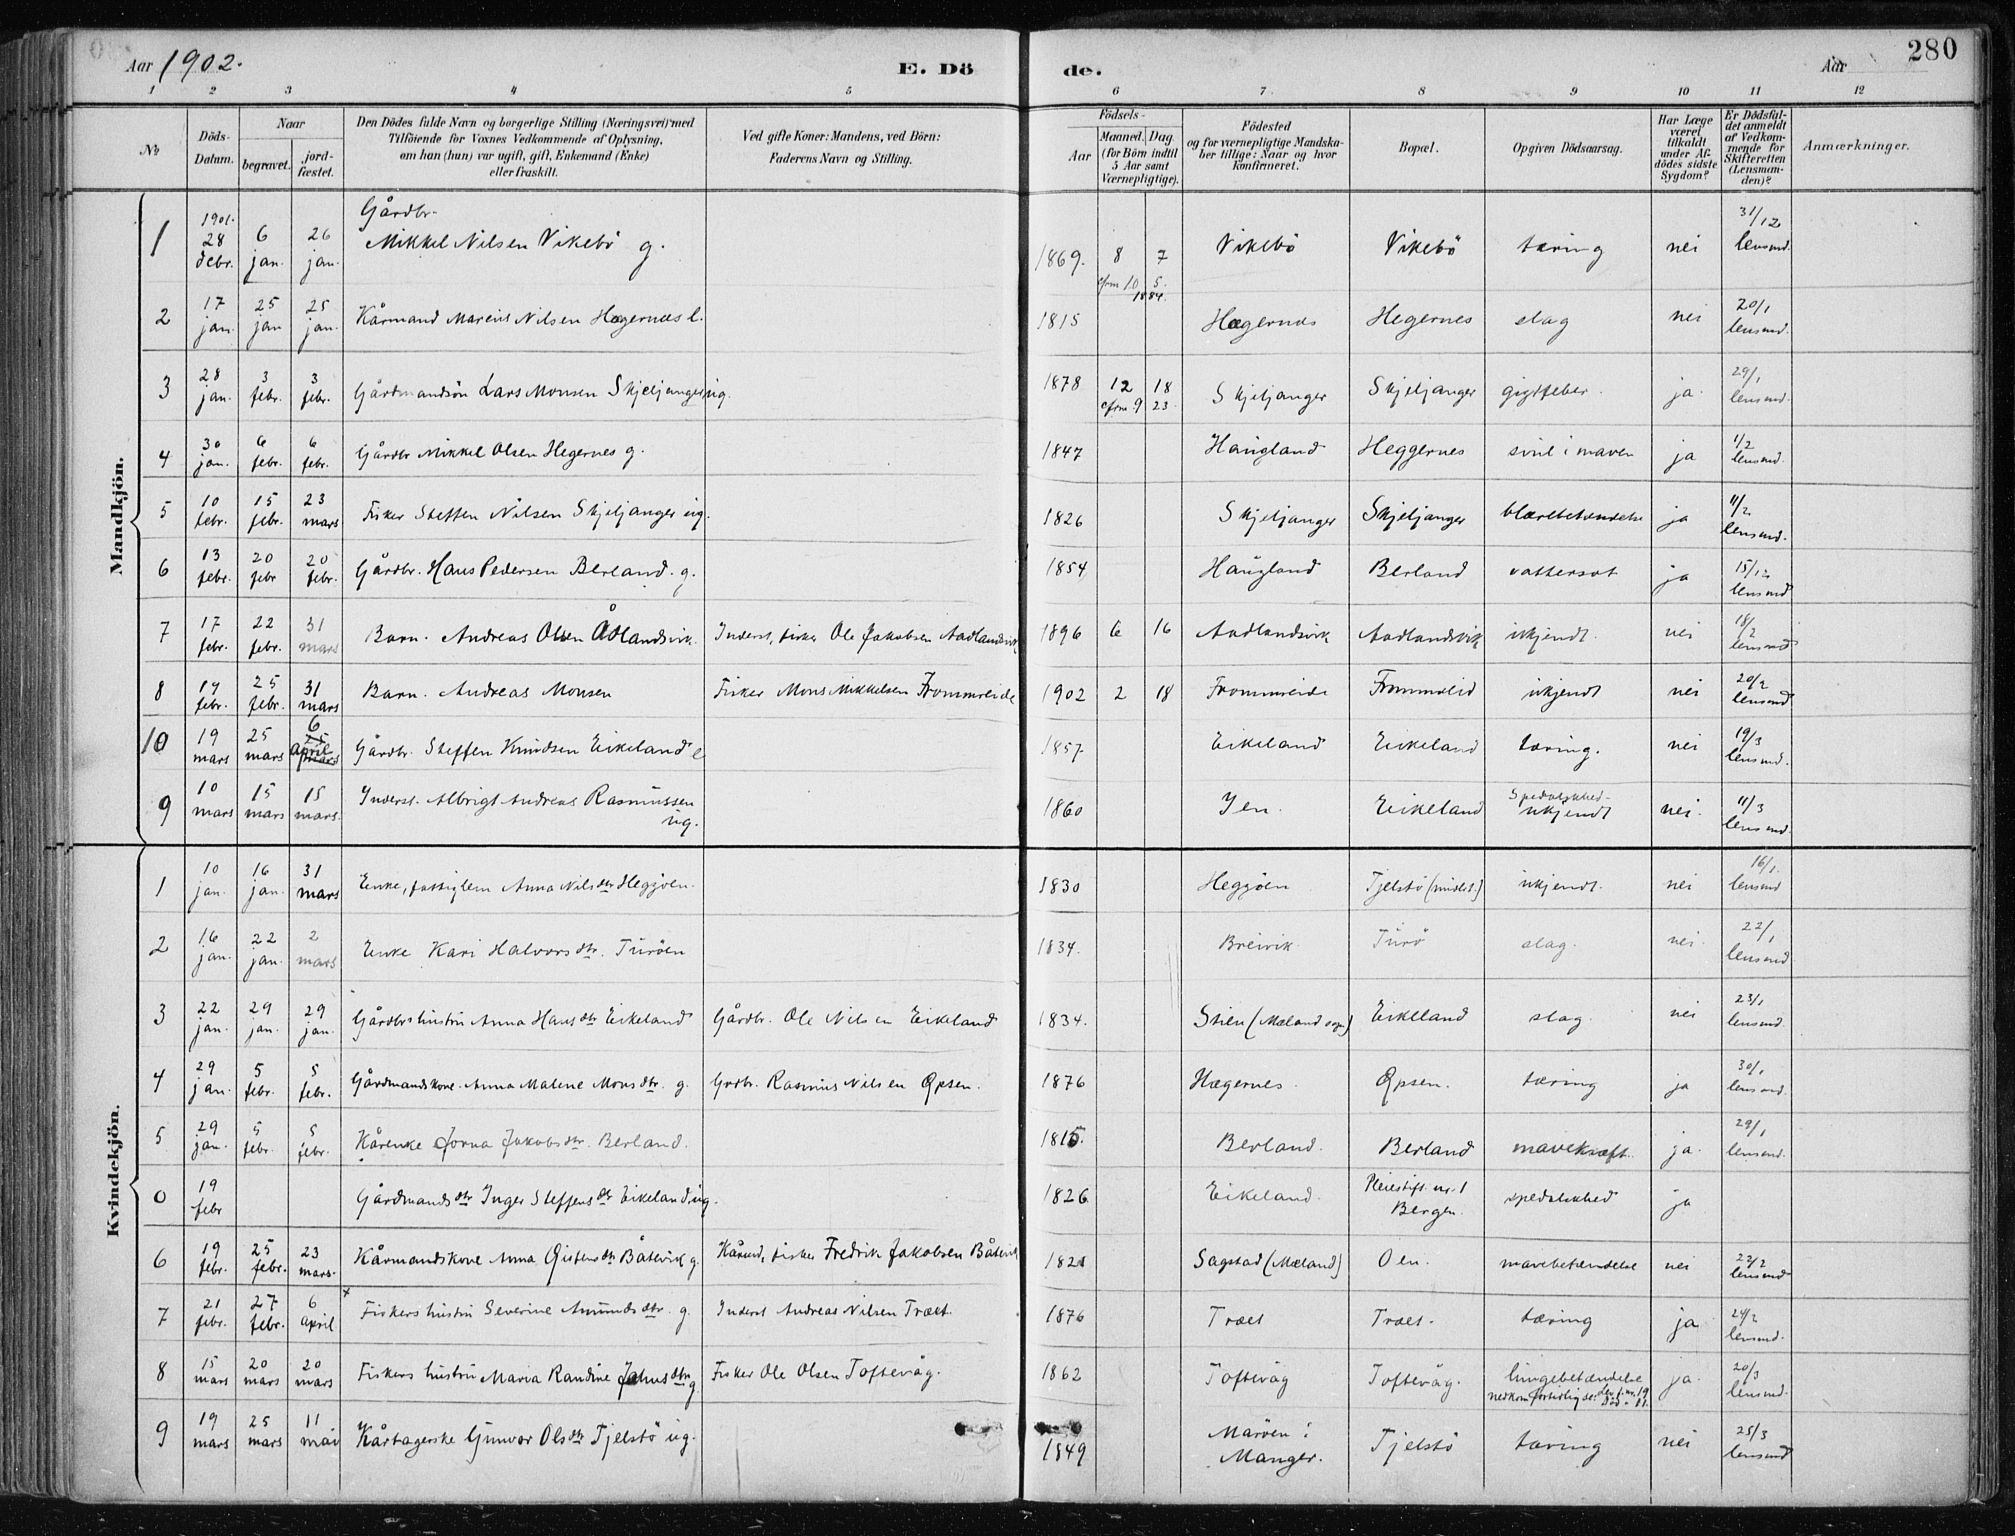 Aar 1902. E. Dö de. Aar 280
1 2 3 4 5 6 7 8 9 10 11 12
№ Döds-Datum. Naar begravet. jord-fæstet. Den Dödes fulde Navn og borgerlige Stilling (Næringsvei) med Tilföiende for Voxnes Vedkommende af Oplysning, om han (hun) var ugift, gift, Enkemand (Enke) eller fraskilt. Ved gifte Koner: Mandens, ved Börn: Faderens Navn og Stilling. Födsels- Aar Maaned. Dag. (for Börn indtil 5 Aar samt Værnepligtige). Födested og for værnepligtige Mandskaber tillige: Naar og hvor Konfirmeret. Bopæl. Opgiven Dödsaarsag. Har Læge været tilkaldt under Afdödes sidste Sygdom? Er Dödsfaldet anmeldt af Vedkommende for Skifteretten (Lensmanden)? Anmærkninger.
Mandkjön.
1 1901. 28 debr. 6 jan. 26 jan. Gårdbr. Mikkel Nilsen Vikebö g. 1869. 8 7 cfrm 10 5. 1884. Vikebö Vikebö tæring nei 31/12 lensmd.
2 17 jan. 25 jan 25 jan. Kårmand Marius Nilsen Hægernæs e. 1815 Hægernæs Hegernes slag nei 20/1 lensmd.
3 28 jan. 3 febr. 3 febr. Gårdmandsön Lars Monsen Skjeljanger ug. 1878 12 18 cfrm 9 23. Skjeljanger Skjeljanger gigtfeber. ja. 29/1 lensmd.
4 30 jan. 6 febr. 6 febr. Gårdbr Mikkel Olsen Hegernes g. 1847 Haugland Heggernes svul i maven ja 1/2 lensmd.
5 10 febr. 15 febr. 23 mars Fisker Steffen Nilsen Skjeljanger ug. 1826 Skjeljanger Skjeljanger blærebetændelse ja 11/2 lensmd.
6 13 febr. 20 febr 20 febr. Gårdbr. Hans Pedersen Berland. g. 1854 Haugland Berland vattersot ja 15/12 lensmd
7 17 febr. 22 febr. 31 mars Barn. Andreas Olsen Ådlandsvik. Inderst, fisker Ole Jakobsen Aadlandsvik 1896 6 16 Aadlandsvik Aadlandsvik ukjendt. nei 18/2 lensmd
8 19 febr. 25 febr. 31 mars Barn. Andreas Monsen Fisker Mons Mikkelsen Frommreide 1902 2 18 Frommreide Frommeid ukjendt nei 20/2 lensmd
10 19 mars 25 mars 6 april Gårdbr. Steffen Knudsen Eikeland e 1857 Eikeland Eikeland tæring. nei 19/3 lensmd.
9 10 mars 15 mars 15 mars. Inderst. Albrigt Andreas Rasmussen ug. 1860 Yen. Eikeland Spedalskhed ukjendt nei. 11/3 lensmd.
Kvindekjön.
1 10 jan. 16 jan. 31 mars Enke, fattiglem Anna Nilsdtr Heggöen. 1830 Heggöen Tjelstö (midlet.) ukjendt. nei 16/1. lensmd
2 16 jan. 22 jan. 2 mars Enke Kari Halvorsdtr. Turöen 1834. Breivik Turö slag. nei. 22/1 lensmd
3 22 jan. 29 jan. 29 jan. Gårdbrshustru Anna Hansdtr Eikeland Gårdbr. Ole Nilsen Eikeland 1834. Stien (Mæland sogn) Eikeland slag. nei 23/1 lensmd.
4 29 jan. 5 febr. 5 febr. Gårdmandskone. Anna Malene Monsdtr. g. Grdbr. Rasmus Nilsen Opsen. 1876 Hægernes. Opsen. tæring ja 30/1 lensmd.
5 29 jan. 5 febr. 5 febr. Kårenke Jorna Jakobsdtr. Berland. 1815. Berland. Berland mavekræft. ja. 29/1 lensmd.
0 19 febr Gårdmandsdtr Inger Steffensdtr Eikeland ug. 1826 Eikeland. Pleiestift. nr. 1 Bergen. spedalskhed ja
6 19 febr. 25 febr. 23 mars. Kårmandskone Anna Øistensdtr Båtevik g. Kårmd, fisker Fredrik Jakobsen Båtevik 1821 Sagstad (Mæland) Oen. mavebetændelse nei 22/2 lensmd
7 21 febr. 27 febr. 6 april Fiskershustru Severine Amundsdtr. g. Inderst Andreas Nilsen Træet. 1876 Træet Træet. tæring ja 24/2 lensmd.
8 15 mars 20 mars 20 mars Fiskers hustru Maria Randine Johnsdtr g. Fisker Ole Olsen Toftevåg. 1862 Toftevåg Toftevåg. lungebetændelse nedkom fortidlig ja. 20/3 lensmd.
9 19 mars 25 mars 11 mai Kårtagerske Gunvor Olsdtr Tjelstö ug. 1849 Maröen i Manger. Tjelstö tæring nei 25/3 lensmd